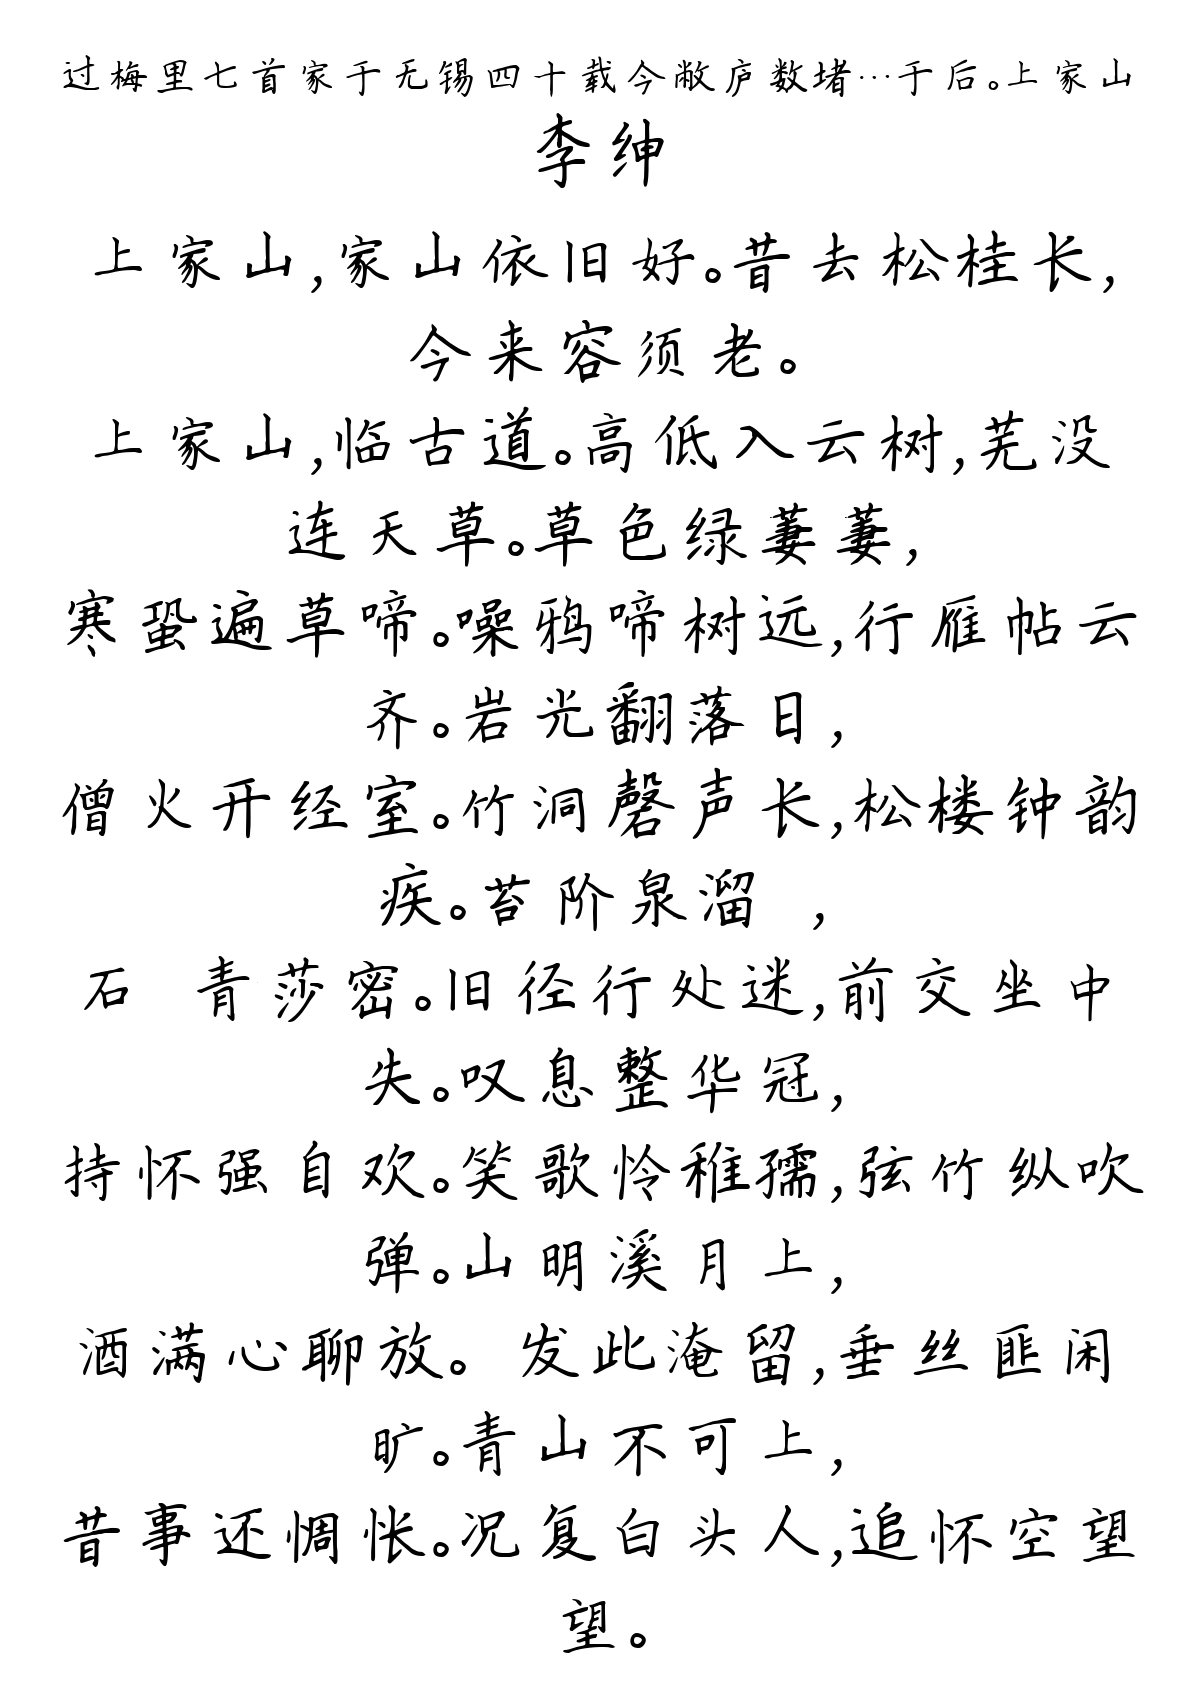 过梅里七首家于无锡四十载今敝庐数堵…于后。上家山
李绅
上家山,家山依旧好。昔去松桂长,
今来容须老。
上家山,临古道。高低入云树,芜没
连天草。草色绿萋萋,
寒蛩遍草啼。噪鸦啼树远,行雁帖云
齐。岩光翻落日,
僧火开经室。竹洞磬声长,松楼钟韵
疾。苔阶泉溜 ,
石 青莎密。旧径行处迷,前交坐中
失。叹息整华冠,
持怀强自欢。笑歌怜稚孺,弦竹纵吹
弹。山明溪月上,
酒满心聊放。 发此淹留,垂丝匪闲
旷。青山不可上,
昔事还惆怅。况复白头人,追怀空望
望。